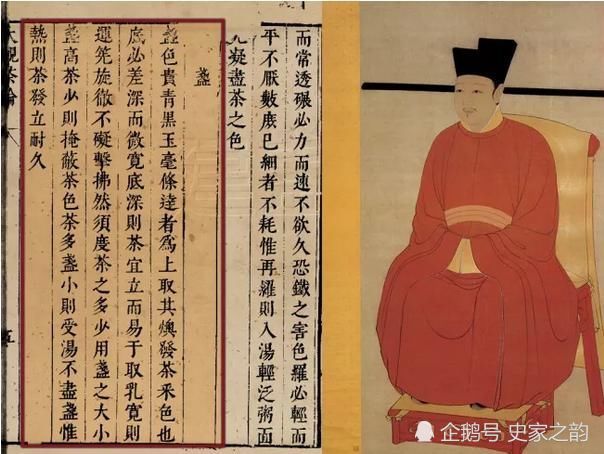 而常透碾必力而速不欲久恐鐵之害色羅必輕而
平不厭數庶已細者不耗惟再羅則入湯輕泛粥面
凝盡茶之色
盞
盞色貴青黑玉毫條達者爲上取其燠發茶采色也
底必差深而微寬底深則茶宜立而易于取乳寬則
運筅旋徹不礙擊拂然須度茶之多少用盞之大小
盞高茶少則掩蔽茶色茶多盞小則受湯不盡盞惟
熱則茶發立耐久
茶論
五
企鹅号 史家之韵